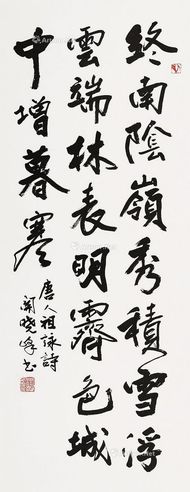 終南陰嶺秀積雪浮
雲端林表明霽色城
中增暮寒
唐人祖詠詩
晓峰书